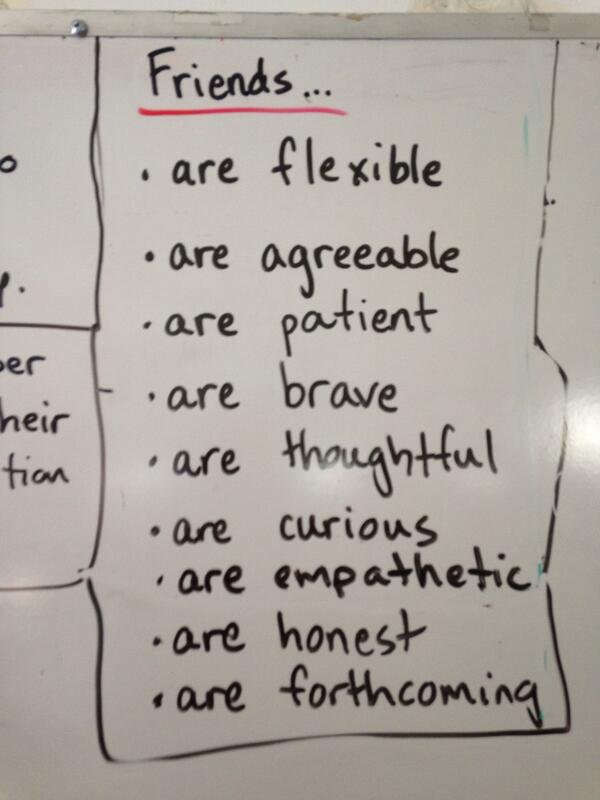 Friends...
• are flexible
• are agreeable
• are patient
• are brave
• are thoughtful
• are curious
• are empathetic
• are honest
• are forthcoming
tion